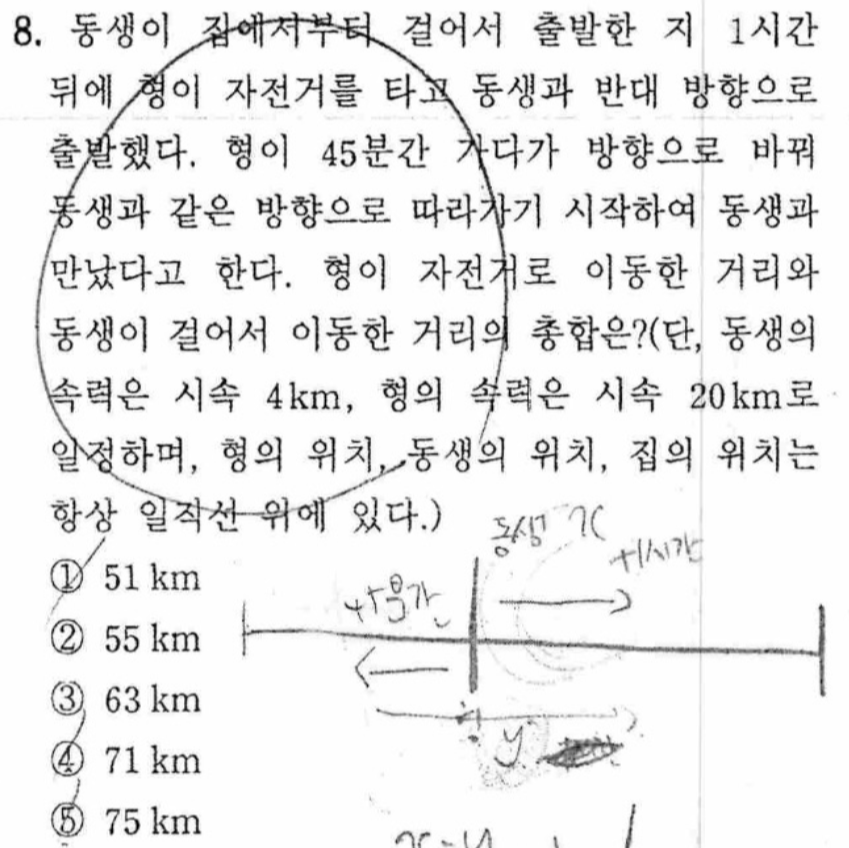 8. 동생이 집에서부터 걸어서 출발한 지 1시간
뒤에 형이 자전거를 타고 동생과 반대 방향으로
출발했다. 형이 45분간 가다가 방향으로 바꿔
동생과 같은 방향으로 따라가기 시작하여 동생과
만났다고 한다. 형이 자전거로 이동한 거리와
동생이 걸어서 이동한 거리의 총합은?(단, 동생의
속력은 시속 4km, 형의 속력은 시속 20km로
일정하며, 형의 위치, 동생의 위치, 집의 위치는
항상 일직선 위에 있다.)
동생 x
+1시간
① 51 km
45분간
② 55 km
③ 63 km
형 y
④ 71 km
⑤ 75 km